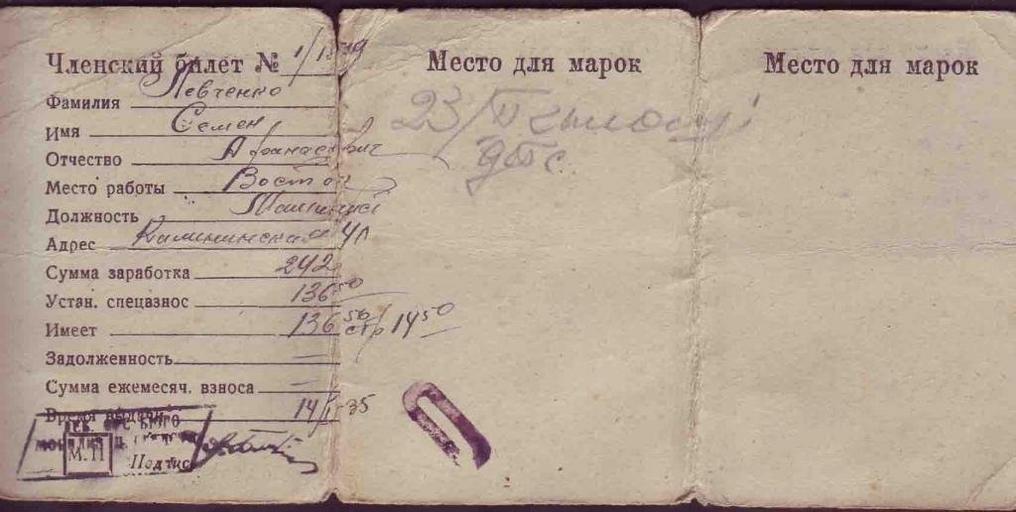 Членский билет №
Фамилия Левченко
Имя Семен
Отчество Афанасьевич
Место работы Восток
Должность
Адрес Калининская 41
Сумма заработка 242
Устан. спецвзнос 136 50
Имеет 136 50 14 50
Задолженность —
Сумма ежемесяч. взноса —
Время выдачи 14 35
БЮРО
М. П
Подпись
Место для марок
23/
Место для марок